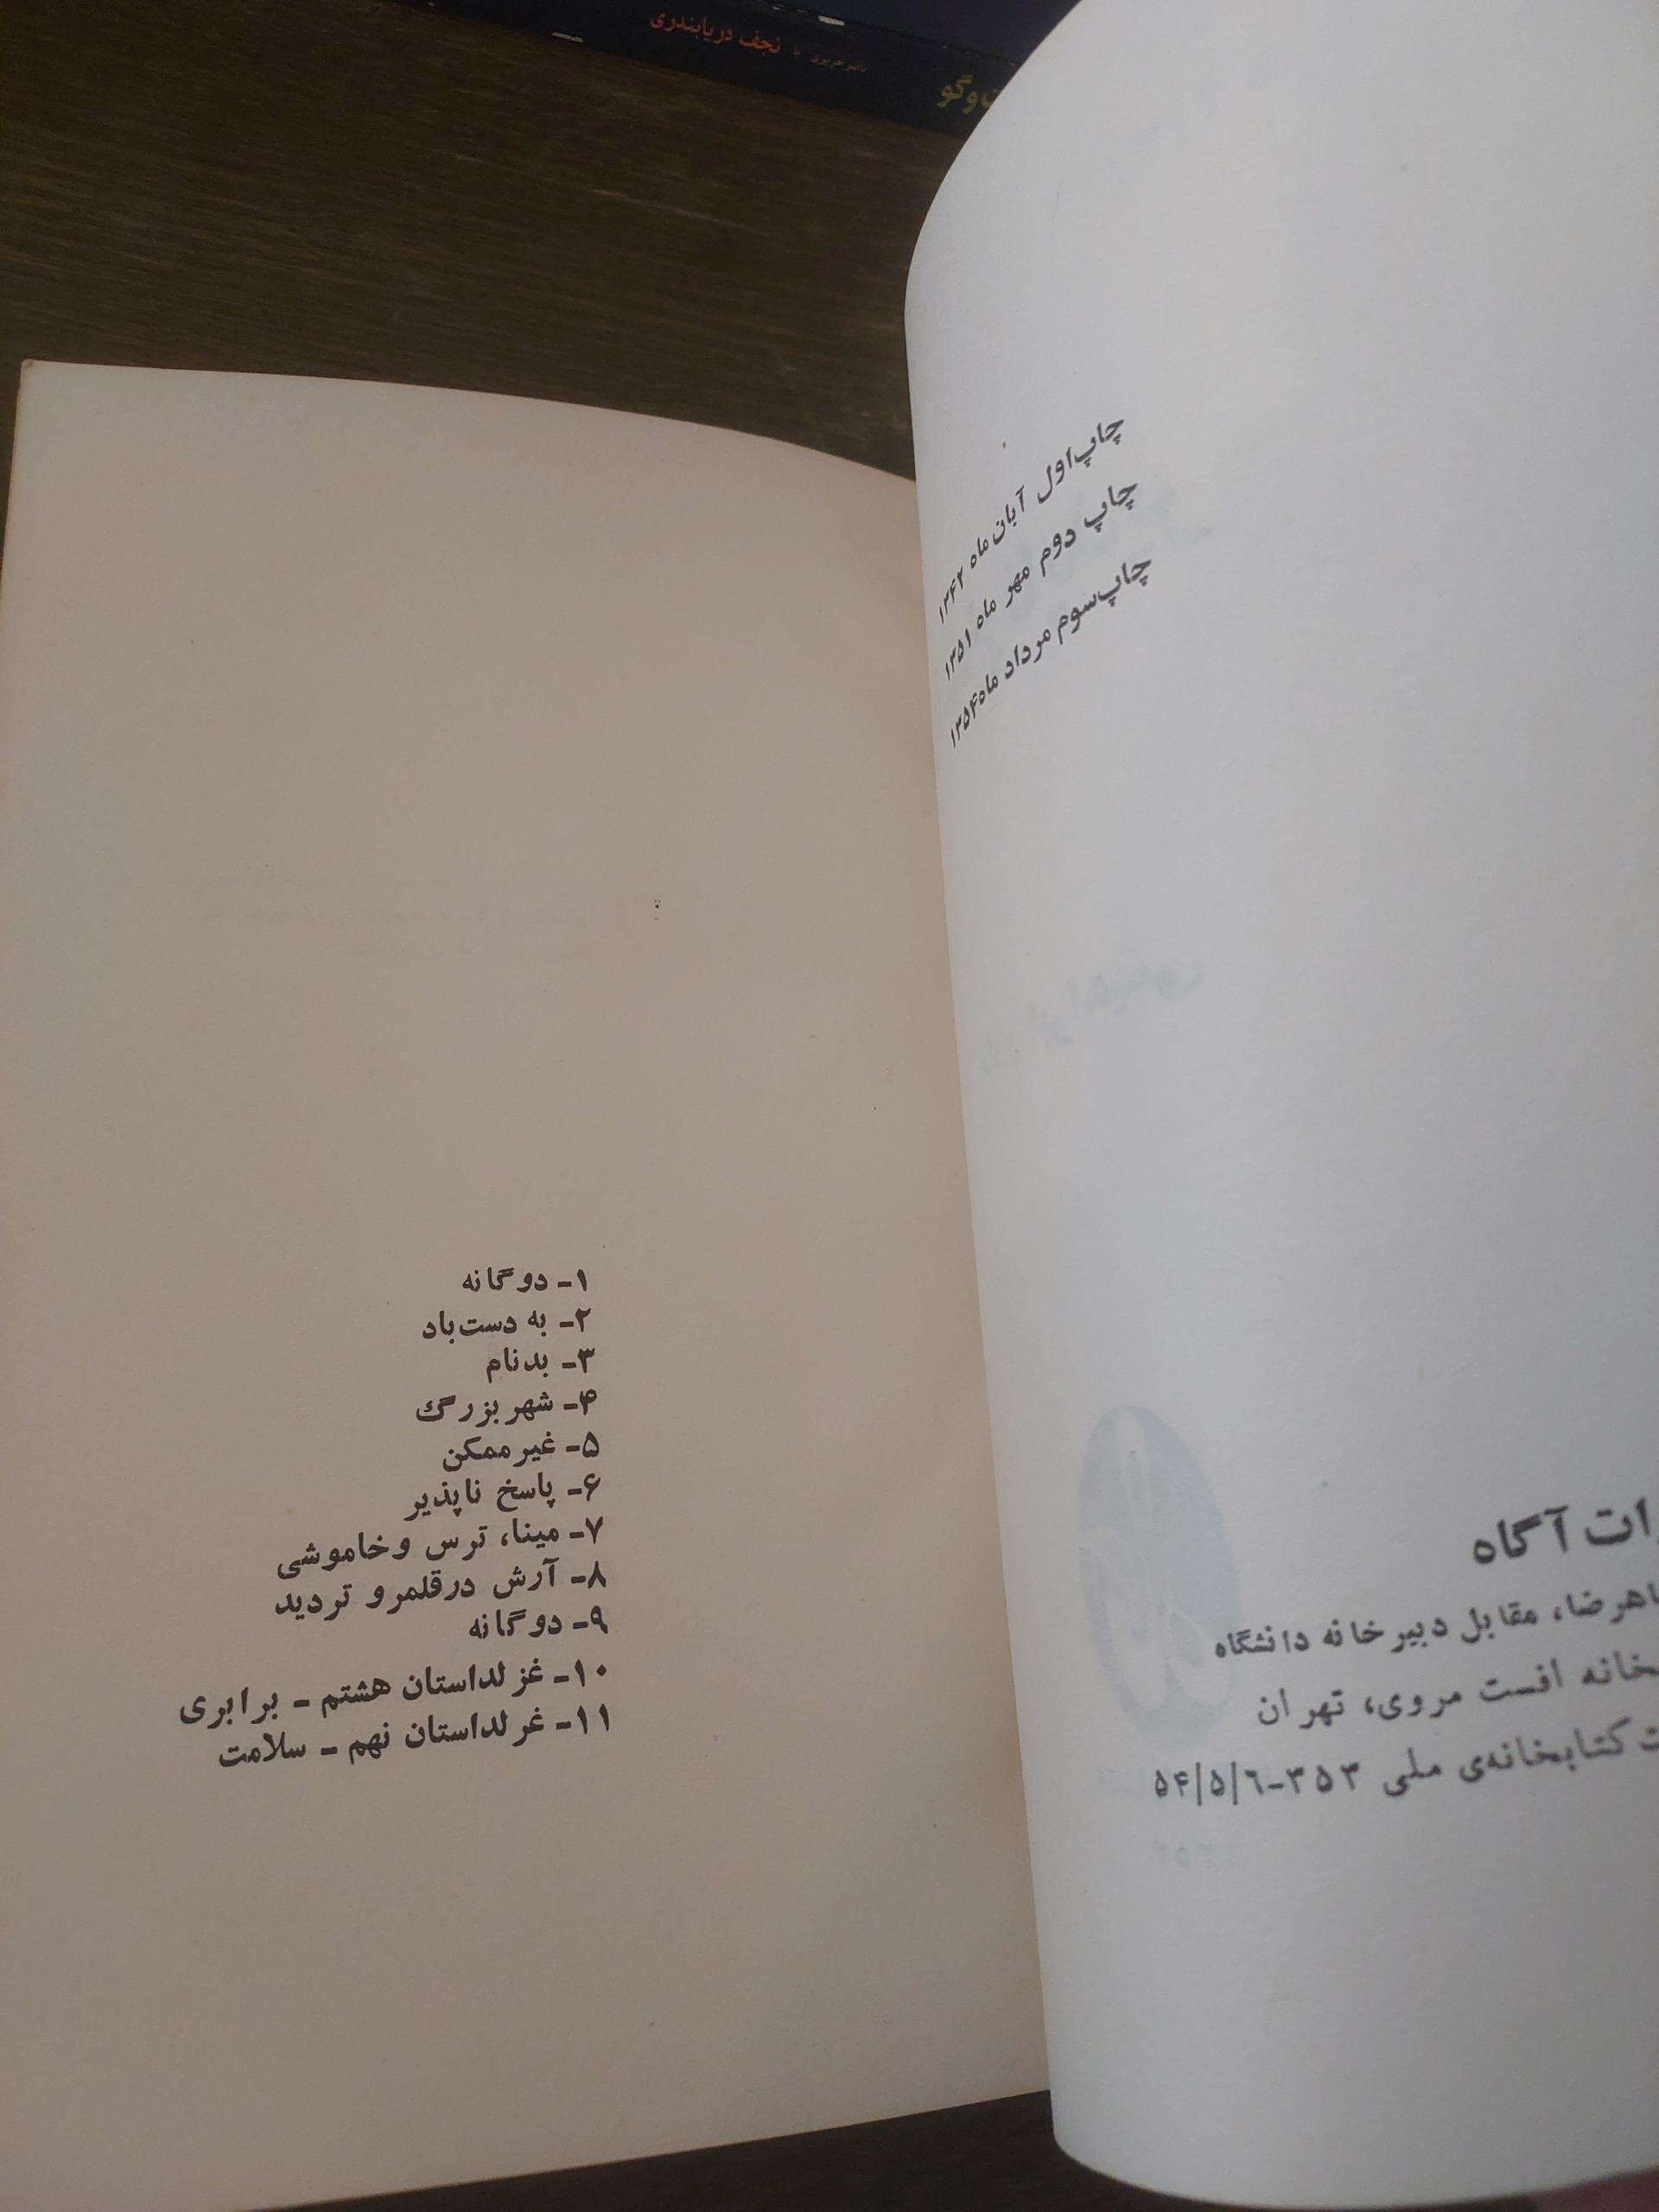 گو
ناصر حریری با نجف دریابندری
چاپ اول آبان ماه ۱۳۴۲
چاپ دوم مهر ماه ۱۳۵۱
چاپ سوم مرداد ماه ۱۳۵۴
آگاه
مقابل دبیرخانه دانشگاه
افست مروی، تهران
کتابخانه‌ی ملی ۳۵۳-۵۴/۵/۶
۱- دوگانه
۲- به دست باد
۳- بدنام
۴- شهر بزرگ
۵- غیرممکن
۶- پاسخ ناپذیر
۷- مینا، ترس و خاموشی
۸- آرش در قلمرو تردید
۹- دوگانه
۱۰- غزلداستان هشتم - برابری
۱۱- غرلداستان نهم - سلامت